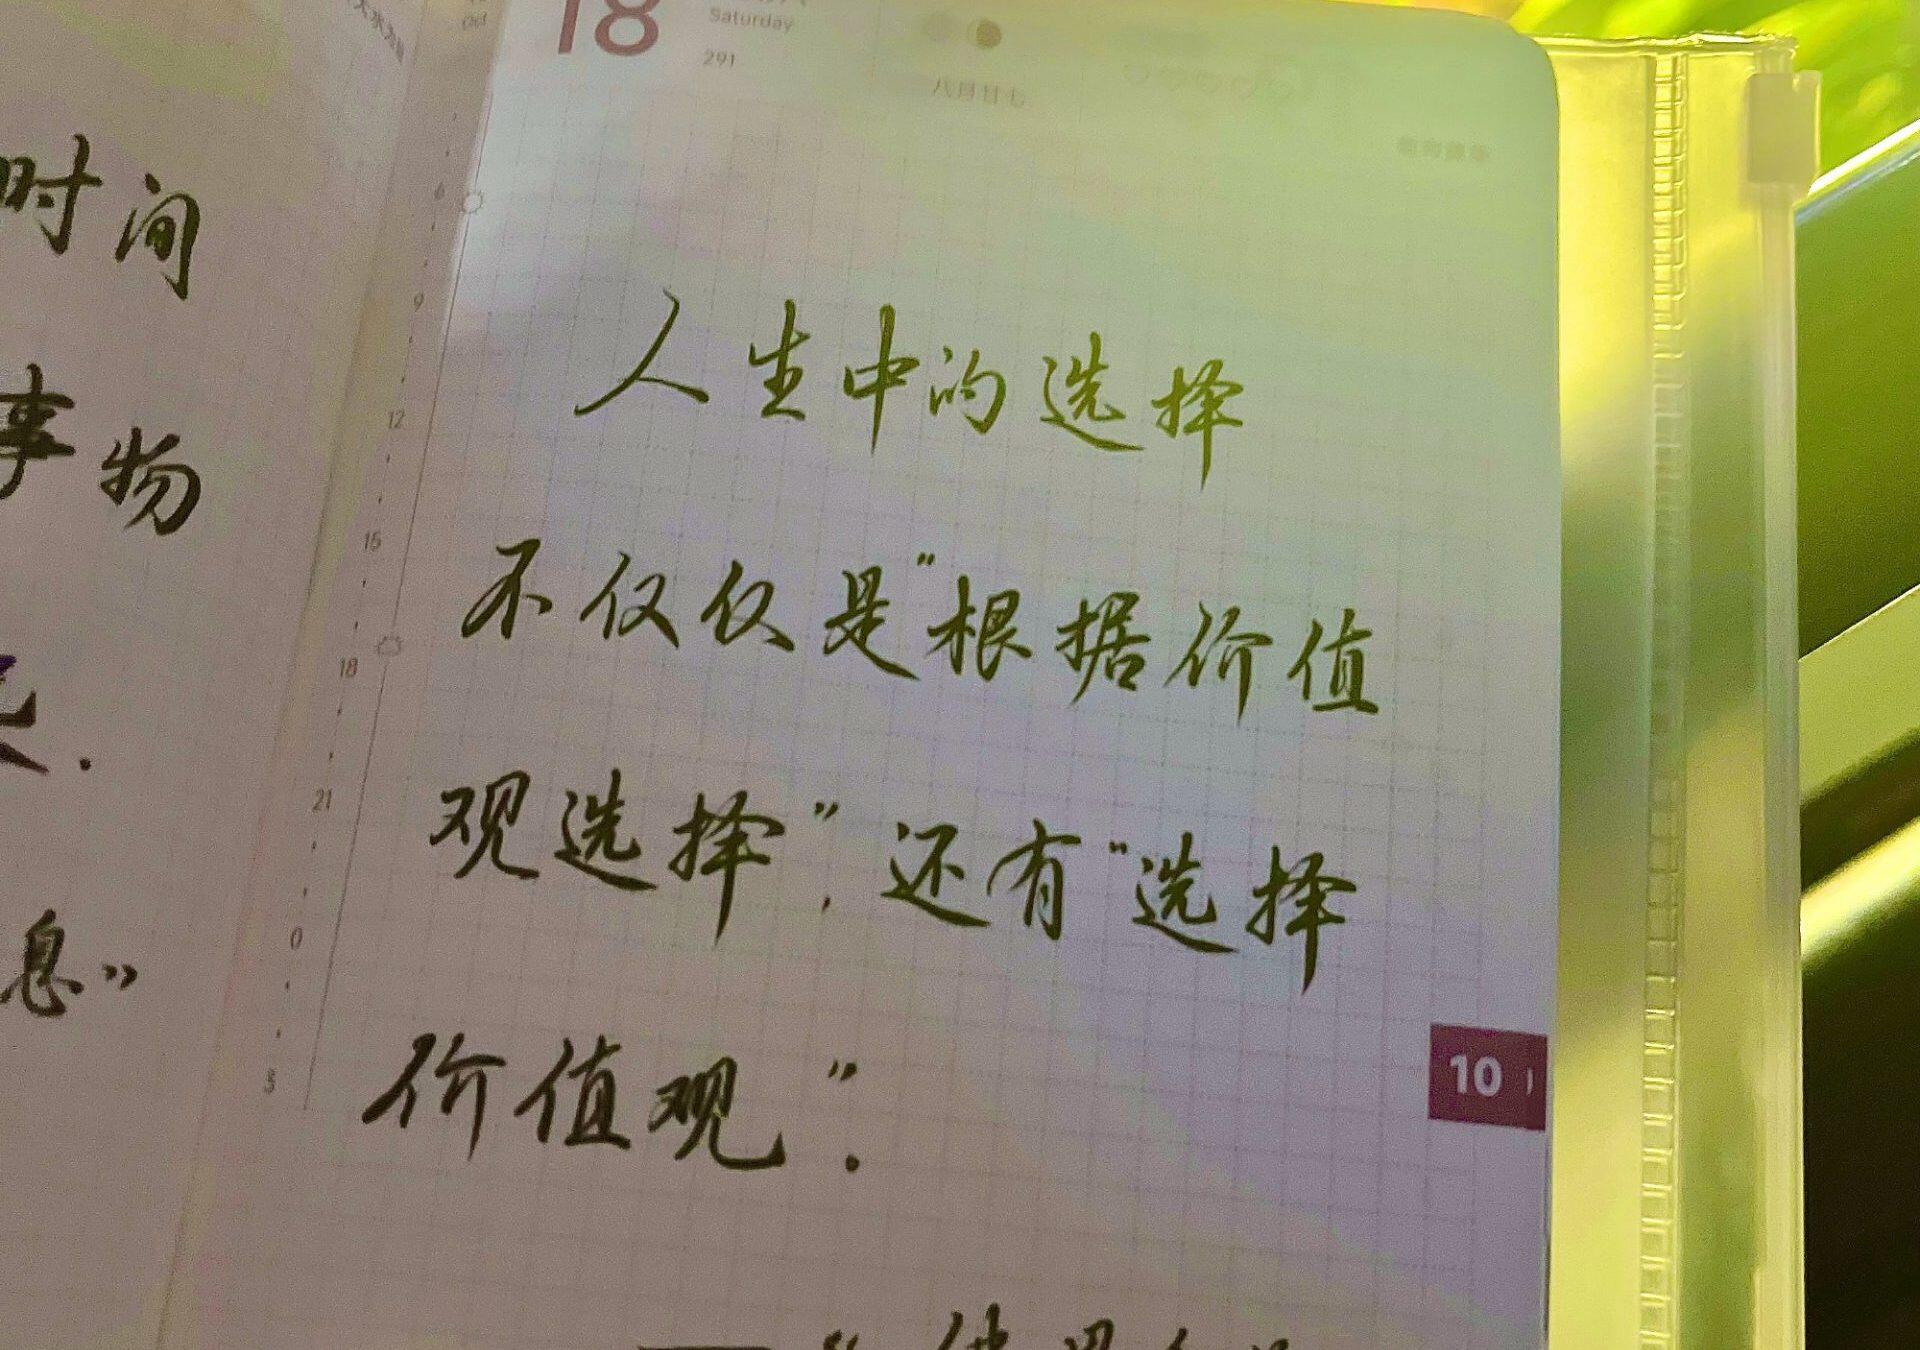 18
Saturday
291
八月廿七
时间
事物
息”
6
9
12
15
18
21
0
3
人生中的选择
不仅仅是“根据价值
观选择”，还有“选择
价值观”.
10